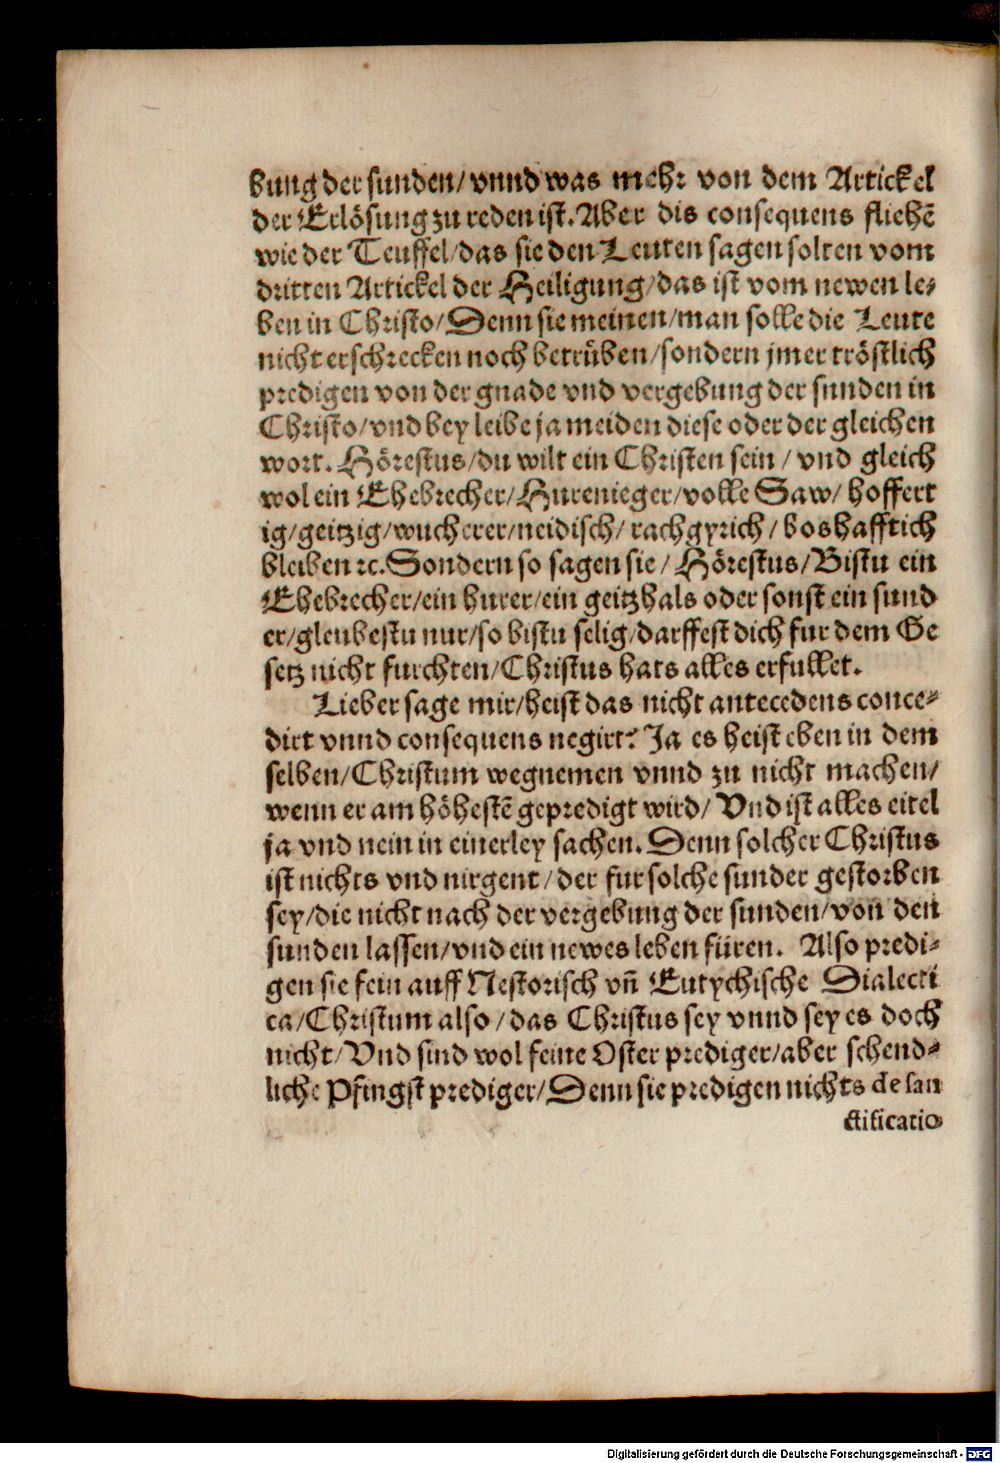 bung der sunden/ vnnd was mehr von dem Artickel
der Erlösung zu reden ist. Aber dis consequens fliehẽ
wie der Teuffel/ das sie den Leuten sagen solten vom
dritten Artickel der Heiligung/ das ist vom newen le-
ben in Christo/ Denn sie meinen/ man solle die Leute
nicht erschrecken noch betrüben/ sondern jmer tröstlich
predigen von der gnade vnd vergebung der sunden in
Christo/ vnd bey leibe ja meiden diese oder der gleichen
wort. Hörestus/ du wilt ein Christen sein/ vnd gleich
wol ein Ehebrecher/ Hurenieger/ volle Saw/ hoffert
ig/ geitzig/ wucherer/ neidisch/ rachgyrich/ boshafftich
bleiben ꝛc. Sondern so sagen sie/ Hörestus/ Bistu ein
Ehebrecher/ ein hurer/ ein geitzhals oder sonst ein sund
er/ gleubestu nur/ so bistu selig/ darffest dich fur dem Ge
setz nicht furchten/ Christus hats alles erfullet.
Lieber sage mir/ heist das nicht antecedens conce-
dirt vnnd consequens negirt? Ja es heist eben in dem
selben/ Christum wegnemen vnnd zu nicht machen/
wenn er am höhestẽ gepredigt wird/ Vnd ist alles eitel
ja vnd nein in einerley sachen. Denn solcher Christus
ist nichts vnd nirgent/ der fur solche sunder gestorben
sey/ die nicht nach der vergebung der sunden/ von den
sunden lassen/ vnd ein newes leben füren. Also predi-
gen sie fein auff Nestorisch vñ Eutychische Dialecti
ca/ Christum also/ das Christus sey vnnd sey es doch
nicht/ Vnd sind wol feine Oster prediger/ aber schend-
liche Pfingst prediger/ Denn sie predigen nichts de san
ctificatio-
Digitalisierung gefördert durch die Deutsche Forschungsgemeinschaft - DFG